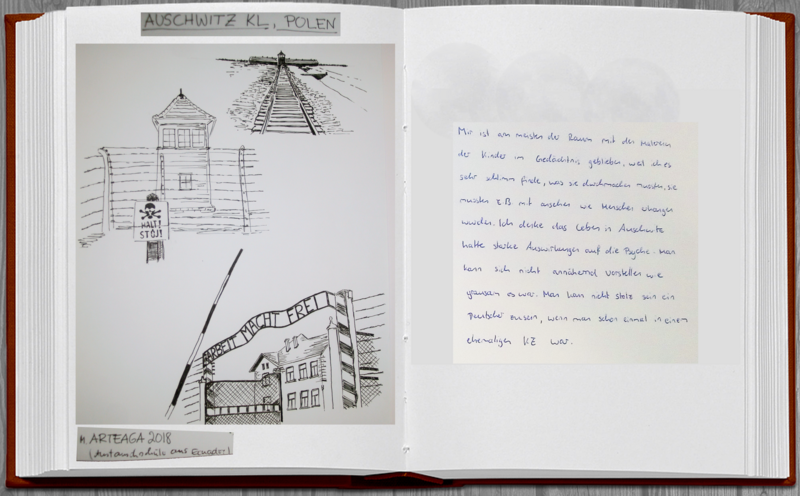 AUSCHWITZ KL, POLEN
HALT!
STÓJ!
ARBEIT MACHT FREI
N. ARTEAGA 2018
(Austauschschüler aus Ecuador)
Mir ist am meisten der Raum mit den Malereien
der Kinder im Gedächtnis geblieben, weil ich es
sehr schlimm finde, was sie durchmachen mussten, sie
mussten z.B. mit ansehen wie Menschen erhangen
wurden. Ich denke das Leben in Auschwitz
hatte starke Auswirkungen auf die Psyche. Man
kann sich nicht annähernd vorstellen wie
grausam es war. Man kann nicht stolz sein ein
Deutscher zu sein, wenn man schon einmal in einem
ehemaligen KZ war.